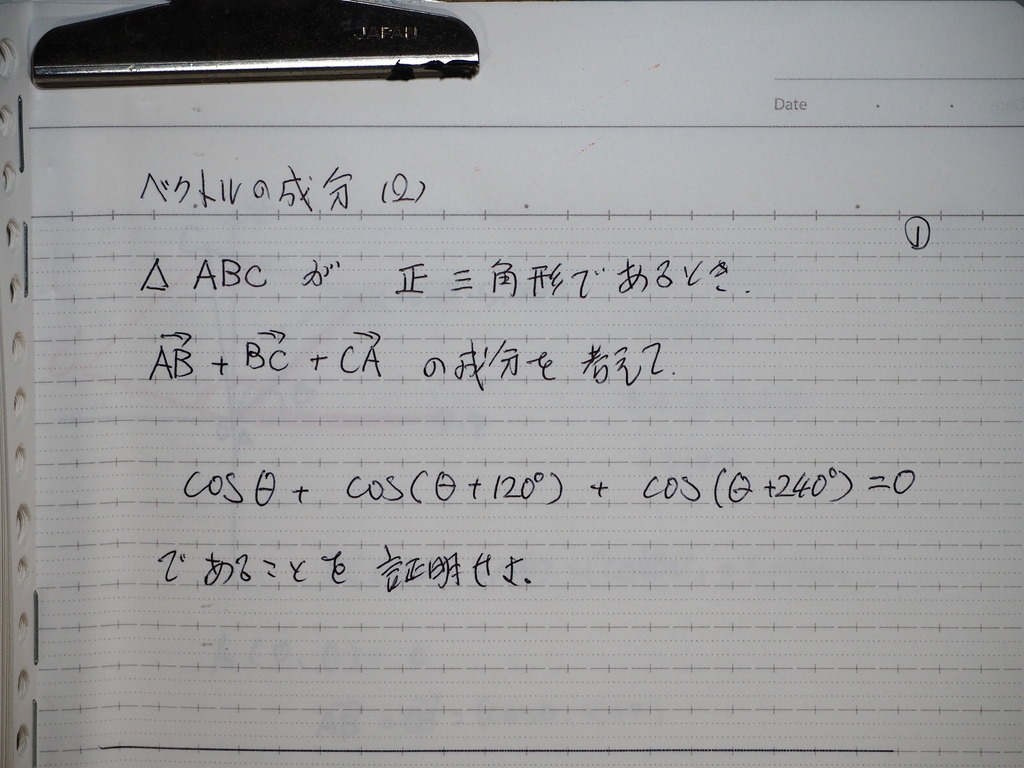 JAPAN
Date
ベクトルの成分 (2)
①
△ ABC が 正三角形であるとき.
→AB + →BC + →CA の成分を考えて.
cosθ + cos(θ+120°) + cos(θ+240°)=0
であることを証明せよ.